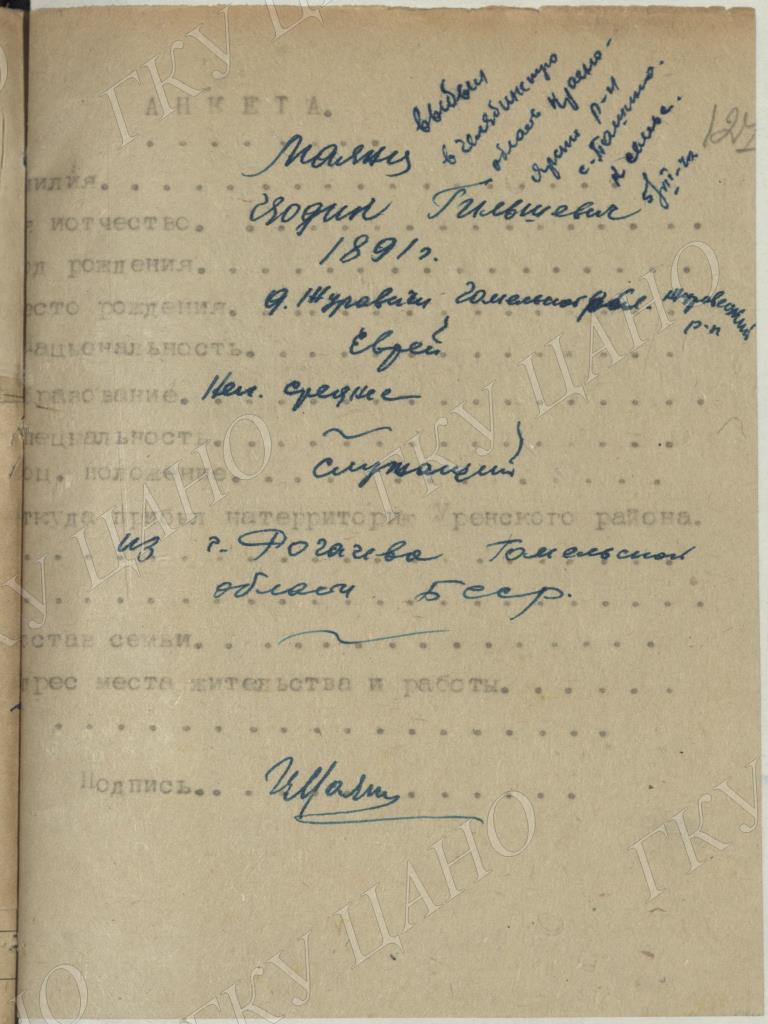 127
АНКЕТА.
выбыл
в Челябинскую
область Красно-
р-н
с.
к семье.
милия. Маянц
и мотчество. Гильшевич
од рождения. 1891 г.
есто рождения. д. Журавичи Гомельской обл. Журавичский
р-н
ациональность. Еврей
бразование. Неп. средне
пециальность.
оц. положение. служащий
ткуда прибыл натерритори Уренского района.
из г. Рогачева Гомельской
области БССР.
став семьи.
дрес места жительства и работы.
Подпись. ИМаянц
ГКУ ЦАНО